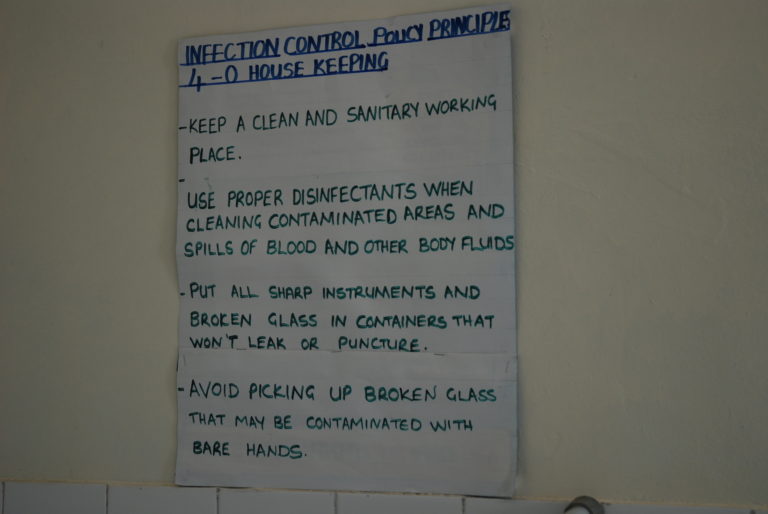 INFECTION CONTROL POLICY PRINCIPLE
4-0 HOUSE KEEPING
-KEEP A CLEAN AND SANITARY WORKING
PLACE.
-
USE PROPER DISINFECTANTS WHEN
CLEANING CONTAMINATED AREAS AND
SPILLS OF BLOOD AND OTHER BODY FLUIDS
-PUT ALL SHARP INSTRUMENTS AND
BROKEN GLASS IN CONTAINERS THAT
WON'T LEAK OR PUNCTURE.
-AVOID PICKING UP BROKEN GLASS
THAT MAY BE CONTAMINATED WITH
BARE HANDS.